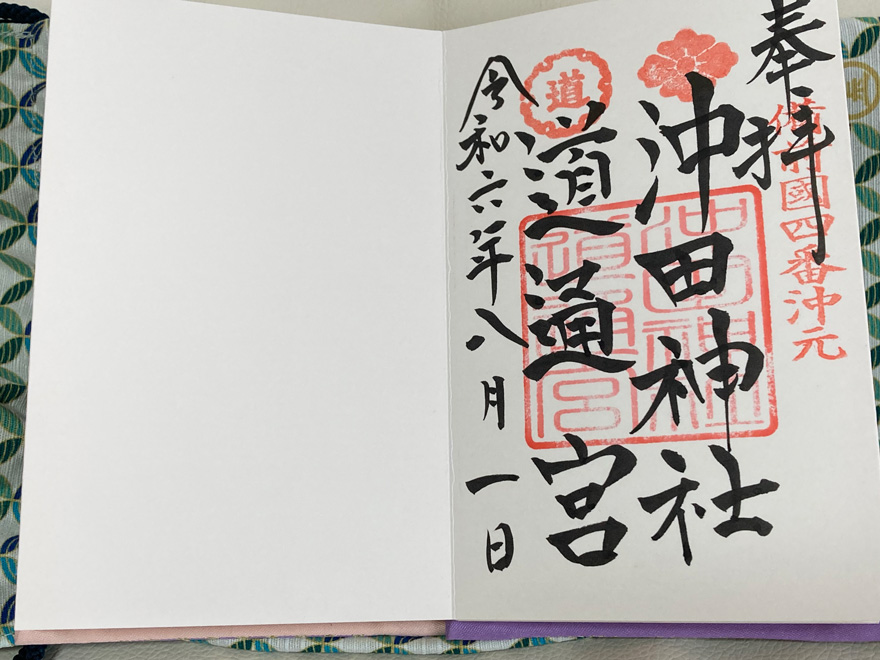 奉拝
備前國四番沖元
沖田神社
道通宮
令和六年八月一日
道
沖田神社
道通宮